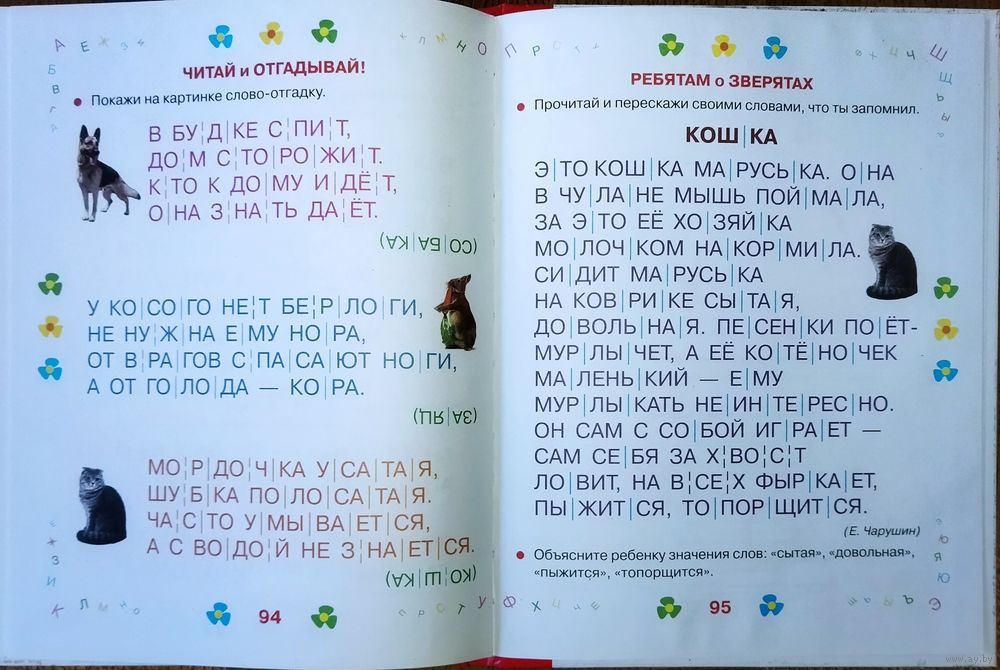 А Е Ж З И
К Л М Н О П Р С Т У
Х Ц Ч Ш
Б
В
Г
Щ
Ъ
Ы
ЧИТАЙ и ОТГАДЫВАЙ!
● Покажи на картинке слово-отгадку.
В БУ¦Д¦КЕ С¦ПИ¦Т,
ДО¦М С¦ТО|РО|ЖИ¦Т.
К¦ТО К ДО|МУ И|ДЁ¦Т,
О|НА З¦НА|ТЬ ДА|ЁТ.
(СО|БА|КА)
У КО|СО|ГО НЕ¦Т БЕ¦Р|ЛО|ГИ,
НЕ НУ¦Ж|НА Е|МУ НО|РА,
ОТ В¦РА|ГОВ С¦ПА|СА|ЮТ НО|ГИ,
А ОТ ГО|ЛО|ДА — КО|РА.
(ЗА|ЯЦ)
МО¦Р|ДО¦Ч|КА У|СА|ТА|Я,
ШУ¦Б|КА ПО|ЛО|СА|ТА|Я.
ЧА¦С|ТО У|МЫ|ВА|ЕТ|СЯ,
А С ВО|ДО¦Й НЕ З¦НА|ЕТ|СЯ.
(КО¦Ш|КА)
Ж
З
И
К Л М Н О
П Р О Т У Ф Х Ц
94
РЕБЯТАМ о ЗВЕРЯТАХ
● Прочитай и перескажи своими словами, что ты запомнил.
КОШ|КА
Э|ТО КОШ|КА МА|РУСЬ|КА. О|НА
В ЧУ|ЛА|НЕ МЫШЬ ПОЙ|МА|ЛА,
ЗА Э|ТО ЕЁ ХО|ЗЯЙ|КА
МО|ЛОЧ|КОМ НА|КОР|МИ|ЛА.
СИ|ДИТ МА|РУСЬ|КА
НА КОВ|РИ|КЕ СЫ|ТА|Я,
ДО|ВОЛЬ|НА|Я. ПЕ|СЕН|КИ ПО|ЁТ-
МУР|ЛЫ|ЧЕТ, А ЕЁ КО|ТЁ|НО|ЧЕК
МА|ЛЕНЬ|КИЙ — Е|МУ
МУР|ЛЫ|КАТЬ НЕ|ИН|ТЕ|РЕС|НО.
ОН САМ С СО|БОЙ ИГ|РА|ЕТ —
САМ СЕ|БЯ ЗА Х¦ВО¦С¦Т
ЛО|ВИТ, НА В¦СЕ¦Х ФЫР|КА|ЕТ,
ПЫ|ЖИТ|СЯ, ТО|ПОР|ЩИТ|СЯ.
(Е. Чарушин)
● Объясните ребенку значения слов: «сытая», «довольная»,
«пыжится», «топорщится».
Э
Ю
Я
Ю
Я Э
95
www.ay.by